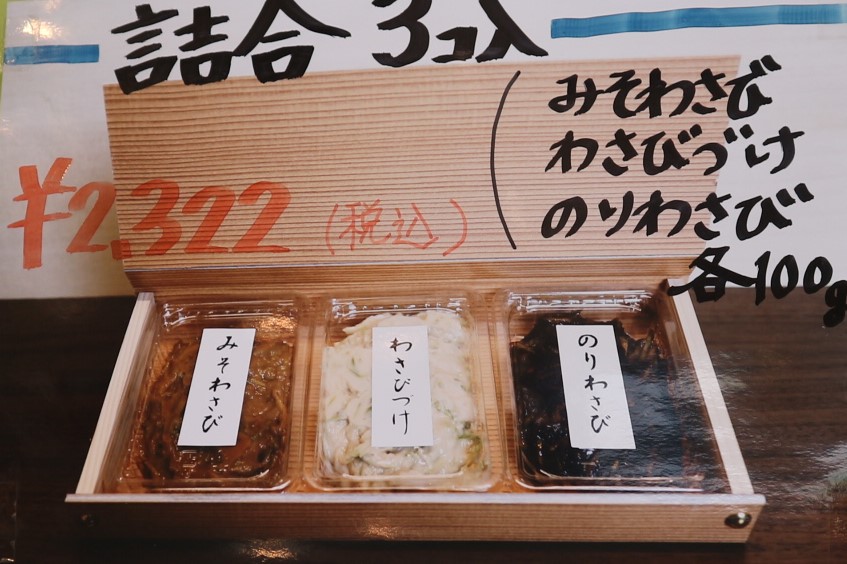 詰合 3コ入
みそわさび
わさびづけ
のりわさび
各100g
¥2,322 (税込)
みそわさび
わさびづけ
のりわさび